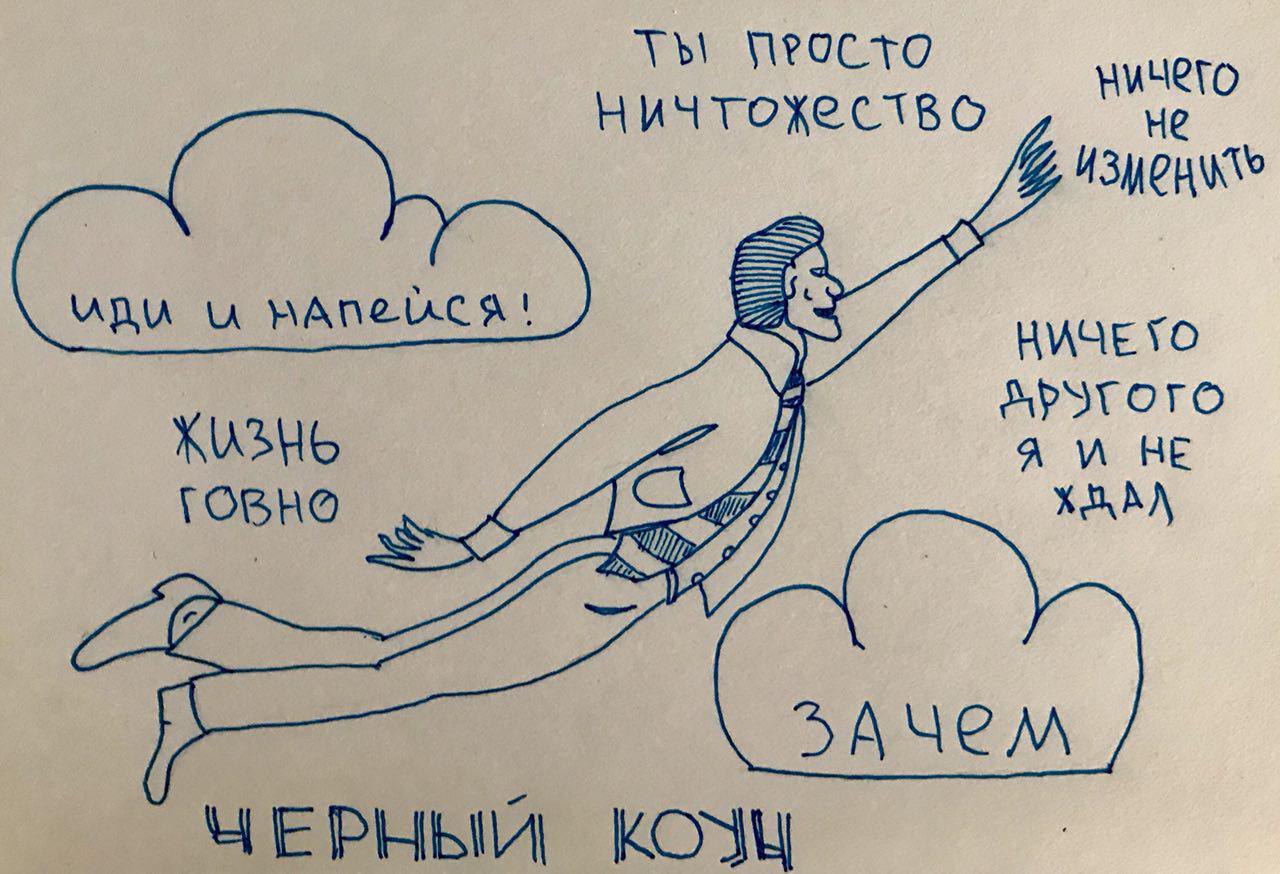 ТЫ ПРОСТО
НИЧТОЖЕСТВО
НИЧЕГО
НЕ
ИЗМЕНИТЬ
ИДИ И НАПЕЙСЯ!
НИЧЕГО
ДРУГОГО
Я И НЕ
ЖДАЛ
ЖИЗНЬ
ГОВНО
ЗАЧЕМ
ЧЕРНЫЙ КОУЧ